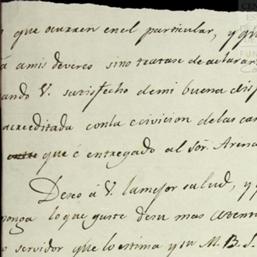 que ocurren en el particular, y qu
á mis deveres sino tratase de aclarar
ando V. satisfecho de mi buena disp
acreditada con la
que é entregado al Sor. Arena
Deseo á V. la mejor salud, y
ponga lo que guste de su mas
servidor que lo estima y su M. B. S.